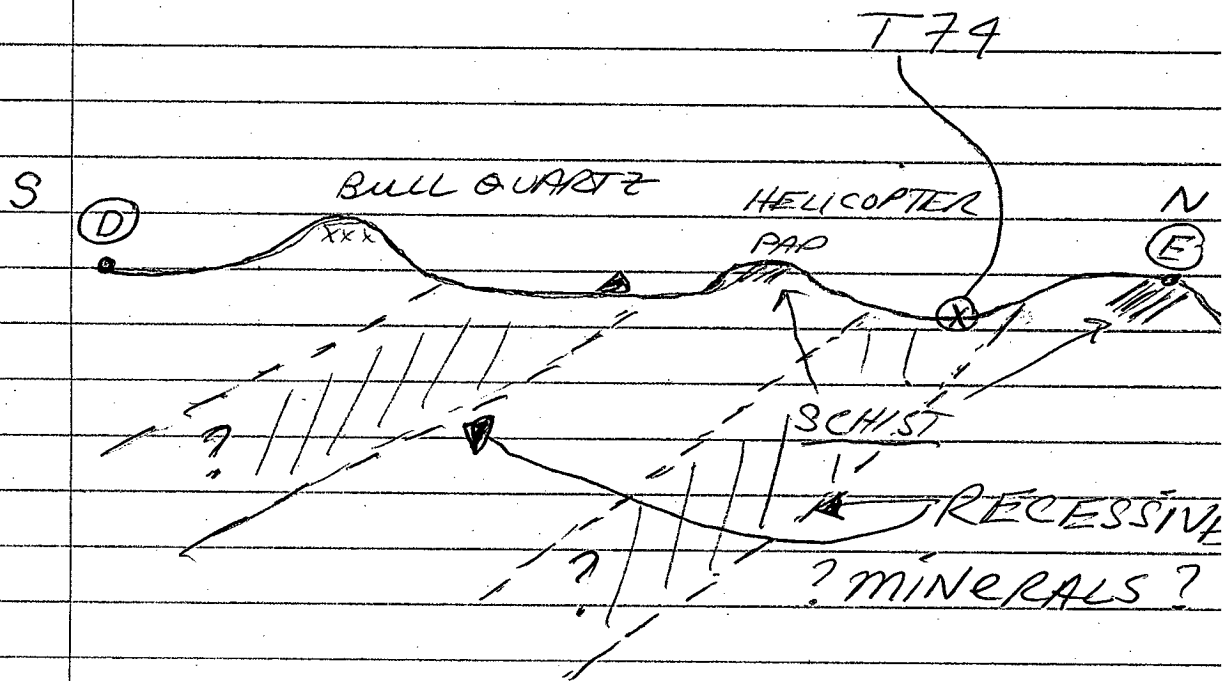 T 74
S
BULL QUARTZ
HELICOPTER
PAD
N
D
xxx
E
X
SCHIST
?
RECESSIVE
?
? MINERALS ?